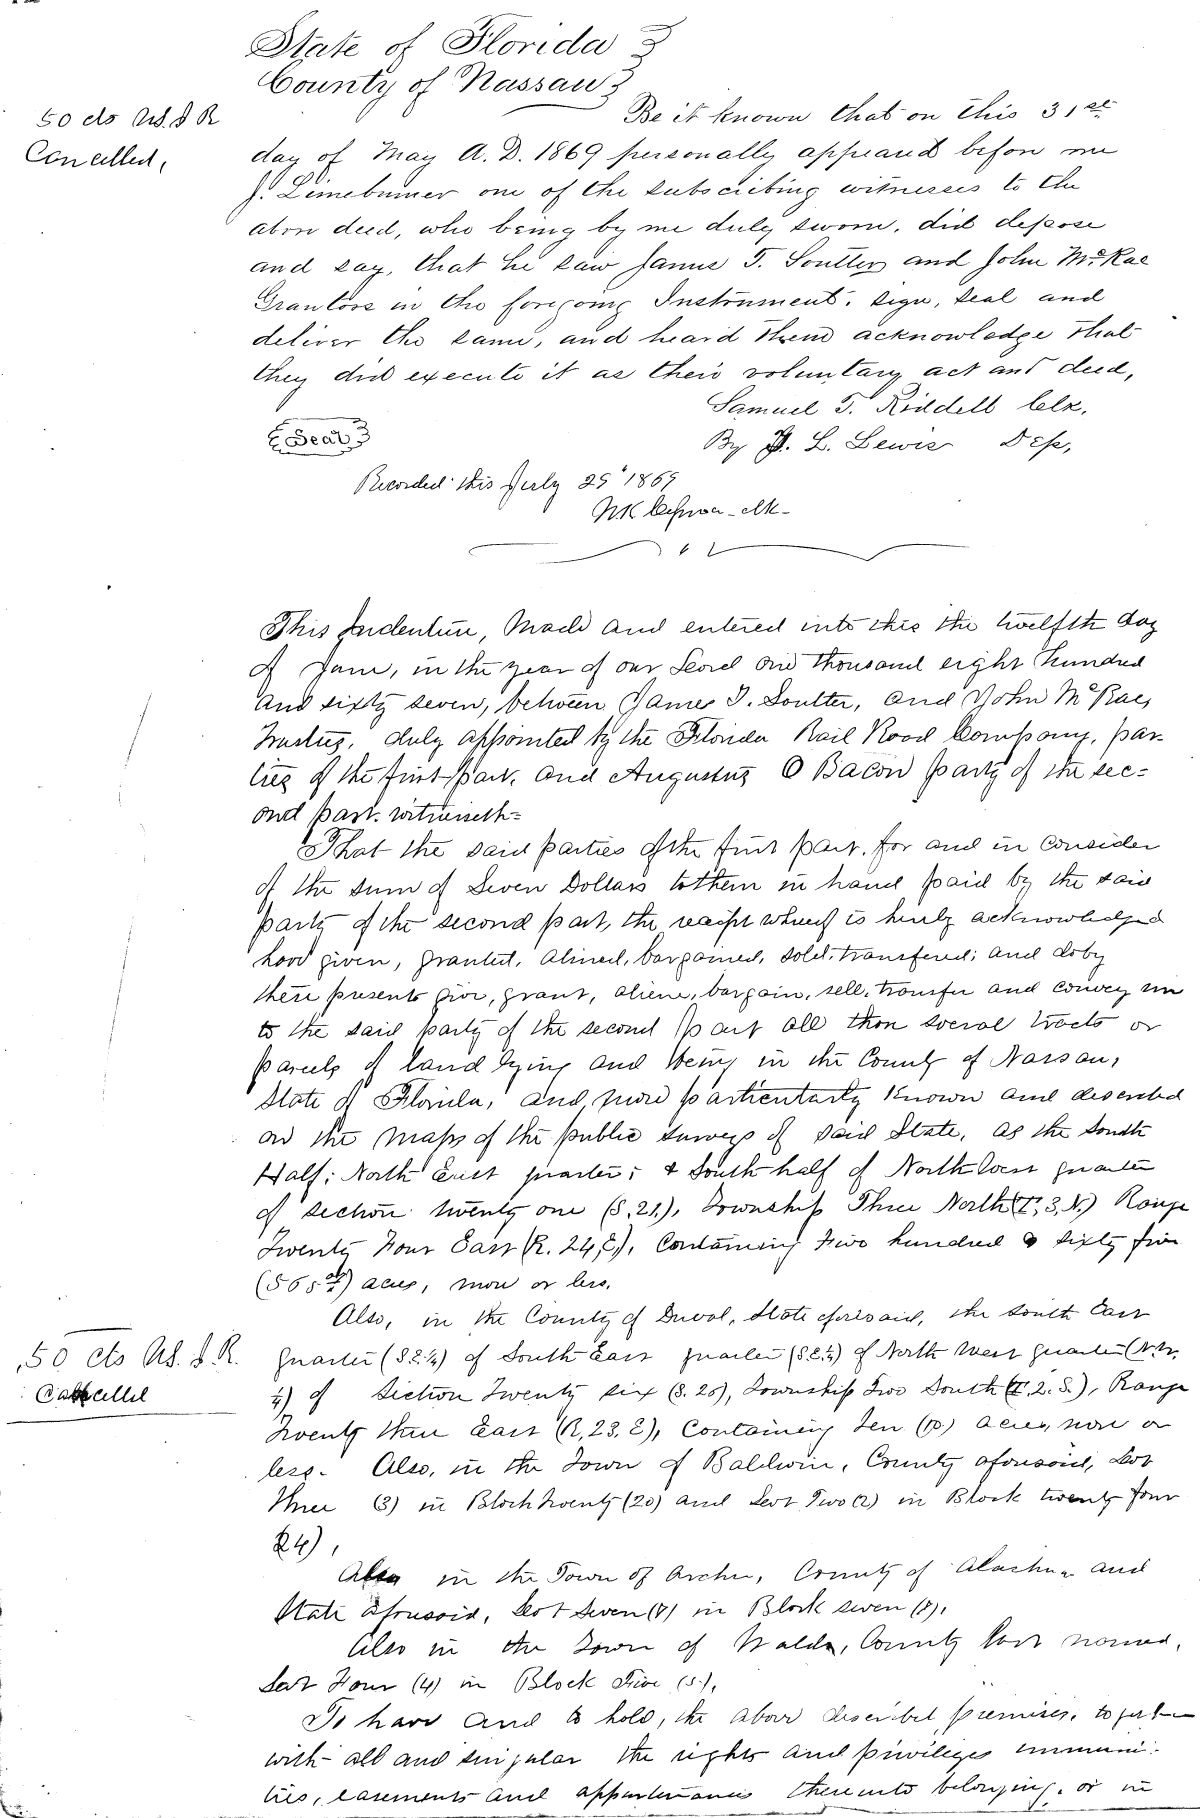 State of Florida }
County of Nassau }
50 cts U.S. I. R
Cancelled,
Be it known that on this 31st
day of May A.D. 1869 personally appeared before me
J. Limeburner one of the subscribing witnesses to the
above deed, who being by me duly sworn, did depose
and say, that he saw James T. Soutter and John McRae
Grantors in the foregoing Instrument, sign, seal and
deliver the same, and heard them acknowledge that
they did execute it as their voluntary act and deed,
Samuel T. Riddell Clk.
(Seal)
By J. L. Lewis Dep,
Recorded this July 29" 1869
Clk-
This Indenture, Made and entered into this the twelfth day
of June, in the year of our Lord one thousand eight hundred
and sixty seven, between James T. Soutter, and John McRae,
Trustees, duly appointed by the Florida Rail Road Company, par-
ties of the first part, and Augustus O Bacon party of the sec=
ond part. witnesseth=
That the said parties of the first part, for and in consider
of the sum of Seven Dollars to them in hand paid by the said
party of the second part, the receipt whereof is hereby acknowledged
have given, granted, aliened, bargained, sold, transfered; and do by
these presents give, grant, aliene, bargain, sell, transfer and convey un
to the said party of the second part all those several tracts or
parcels of land lying and being in the County of Nassau,
State of Florida, and, more particularly known and described
on the maps of the public surveys of said State, as the South
Half; North East quarter; & South half of North West quarter
of section twenty one (S. 21), Township Three North (T. 3, N.) Range
Twenty Four East (R. 24, E.), Containing Five hundred & sixty five
(565) acres, more or less.
Also, in the County of Duval, State aforesaid, the South East
.50 cts U.S. I. R.
Cancelled
quarter (S.E.¼) of South East quarter (S.E.¼) of North West quarter (N.W.
¼) of Section Twenty six (S. 26), Township Two South (T. 2. S.), Range
Twenty three East (R, 23, E), Containing Ten (10) acres, more or
less. Also, in the Town of Baldwin, County aforesaid, Lot
three (3) in Block twenty (20) and Lot Two (2) in Block twenty four
24),
Also in the Town of Archer, County of Alachua and
State aforesaid, Lot Seven (7) in Block seven (7),
Also in the Town of Waldo, County last named,
Lot Four (4) in Block Five (5),
To have and to hold, the above described premises, together
with all and singular the rights and privileges immuni-
ties, easements and appurtenances thereunto belonging, or in